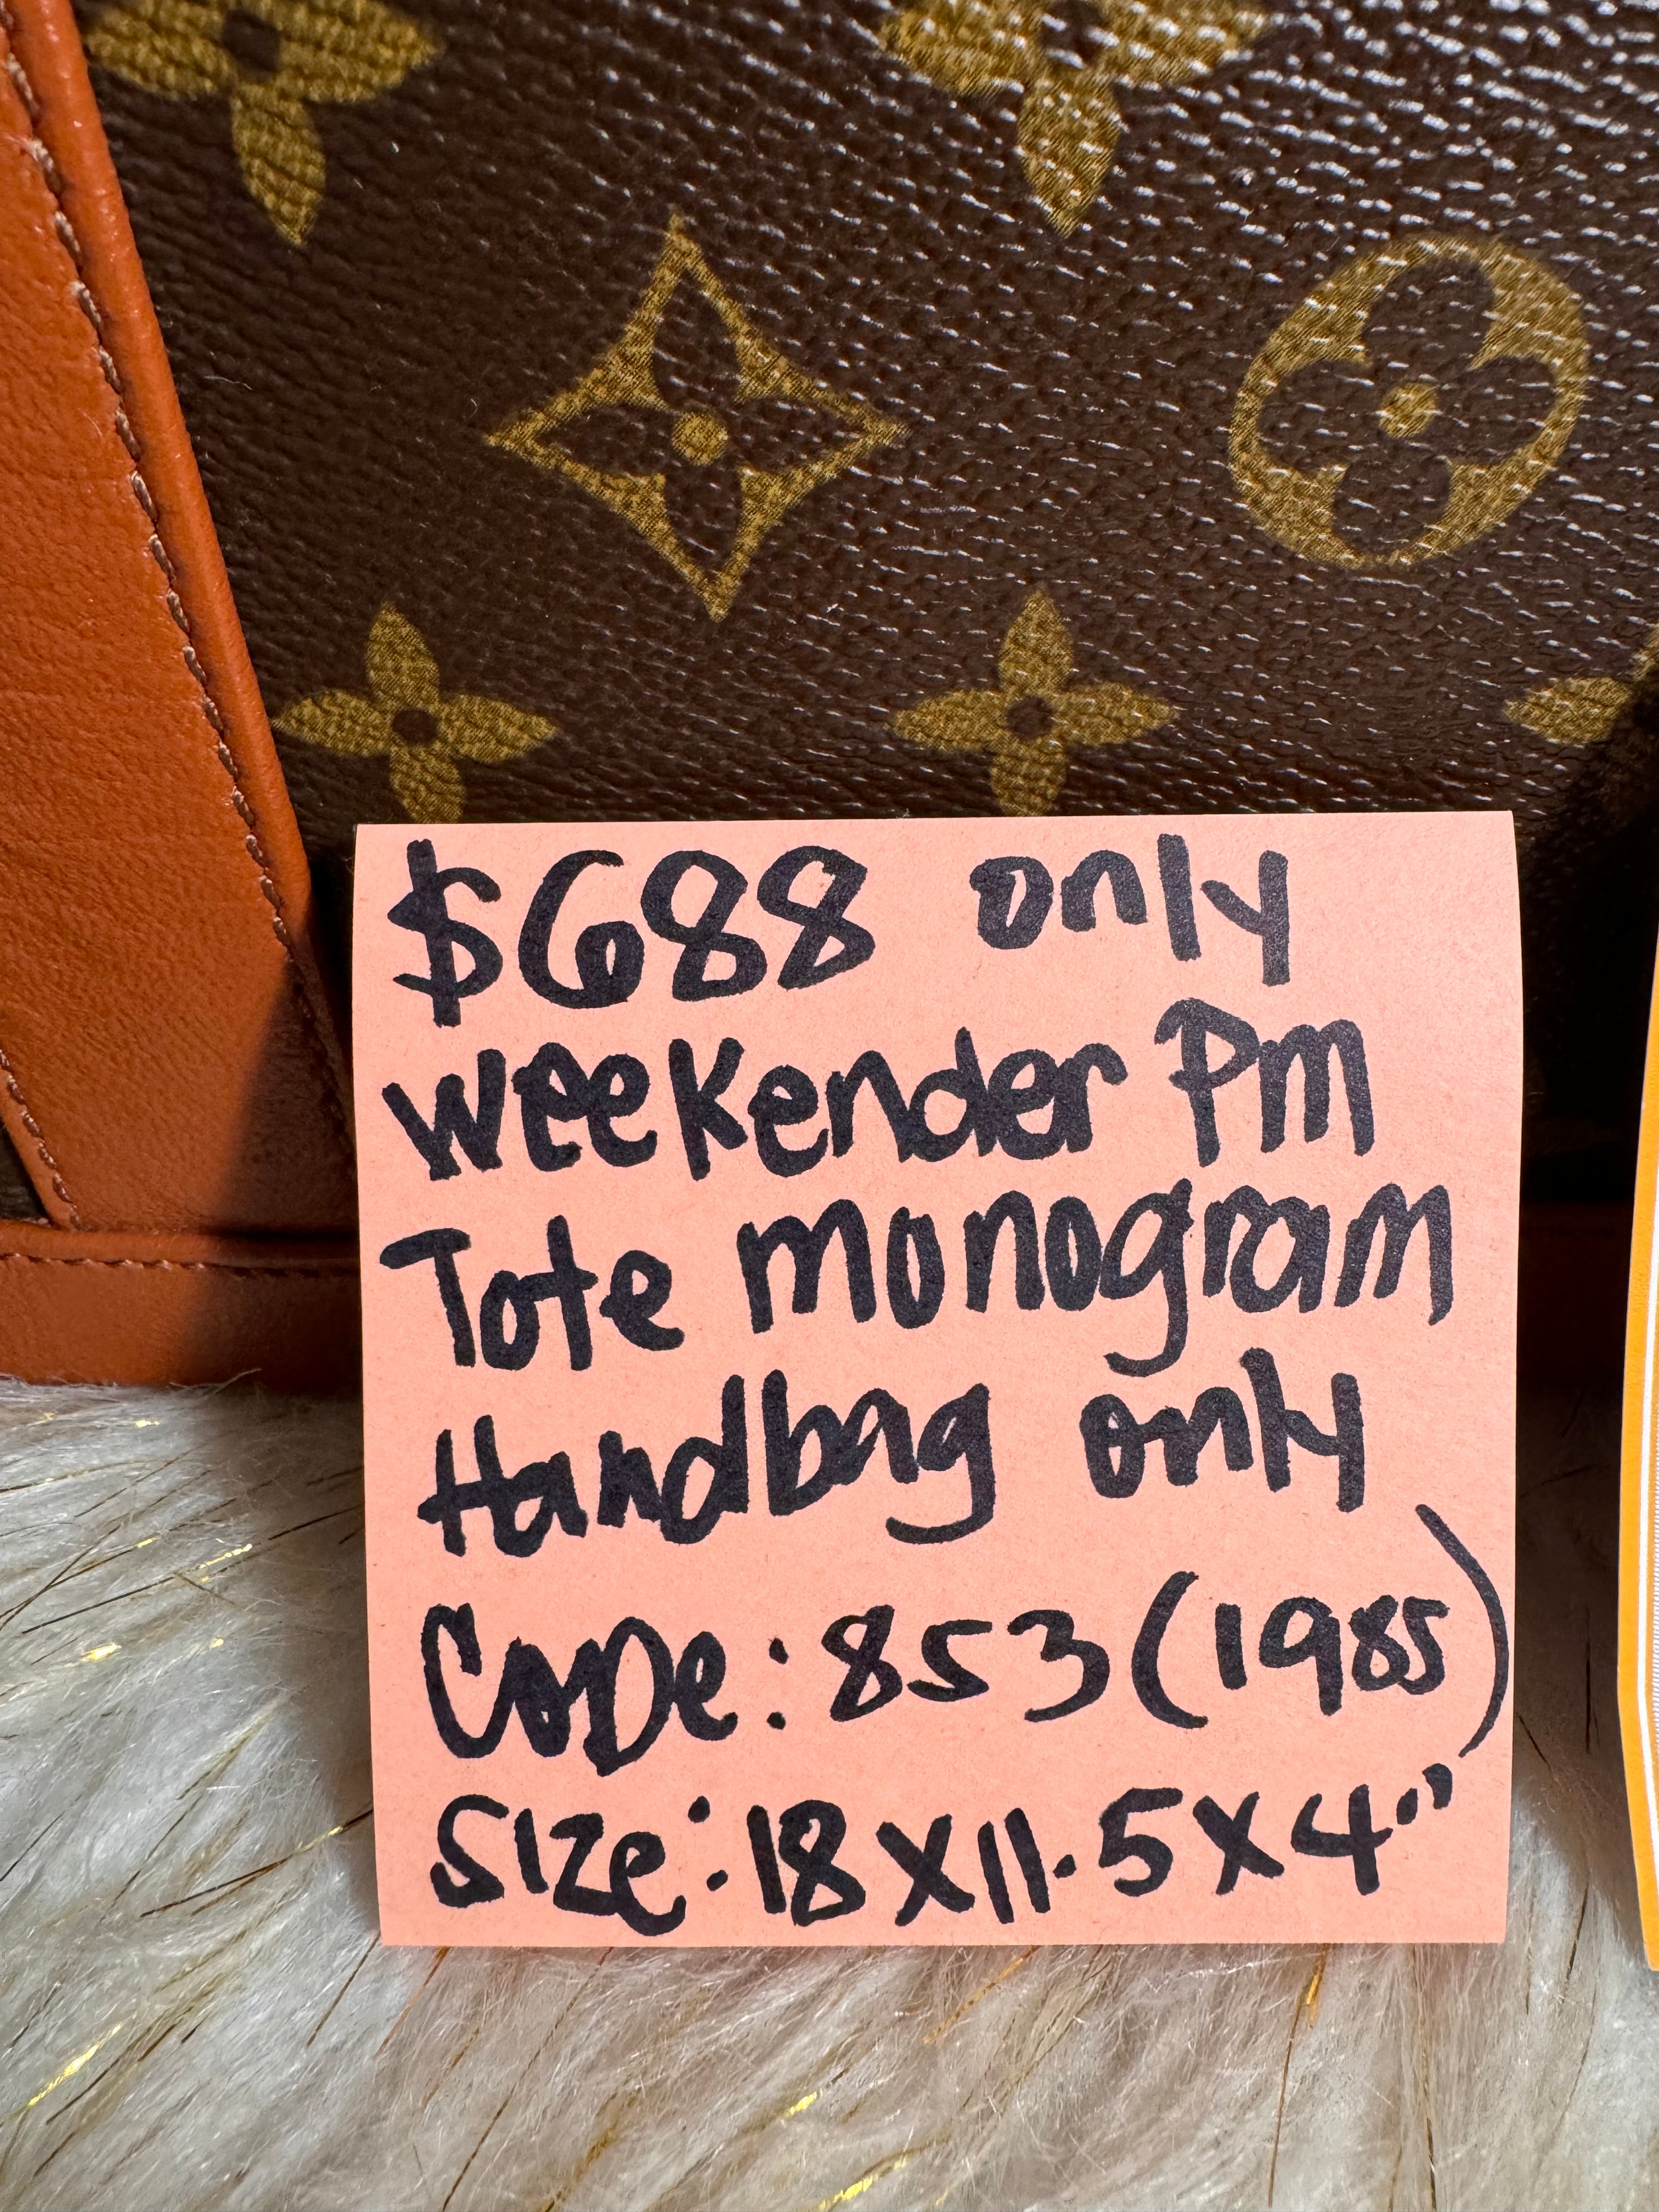 $688 only
Weekender Pm
Tote monogram
Handbag only
Code: 853 (1985)
Size: 18x11.5x4"